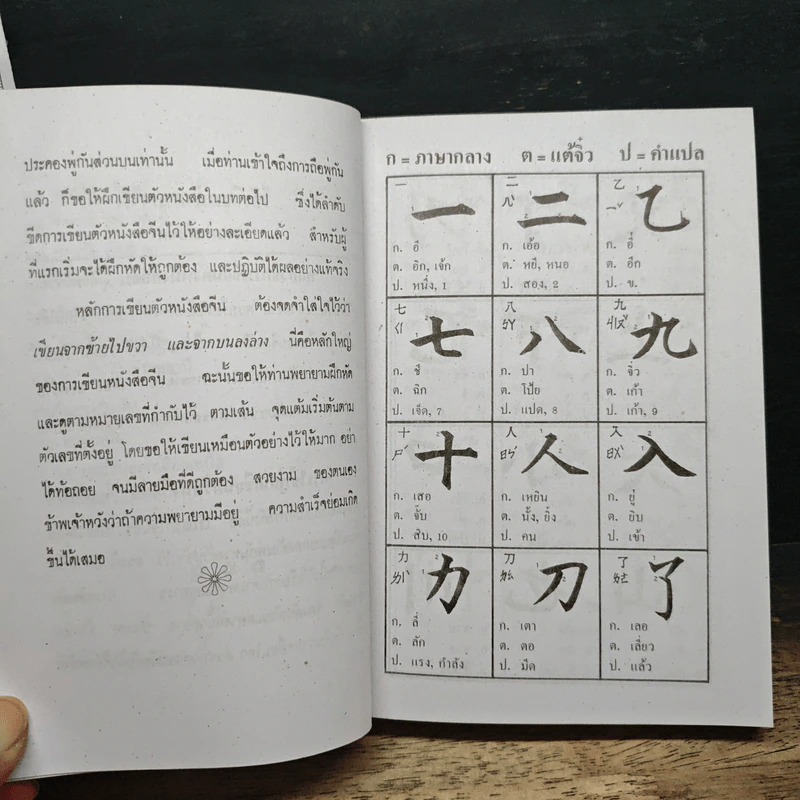 ประคองพู่กันส่วนบนเท่านั้น เมื่อท่านเข้าใจถึงการถือพู่กัน
แล้ว ก็ขอให้ฝึกเขียนตัวหนังสือในบทต่อไป ซึ่งได้ลำดับ
ขีดการเขียนตัวหนังสือจีนไว้ให้อย่างละเอียดแล้ว สำหรับผู้
ที่แรกเริ่มจะได้ฝึกหัดให้ถูกต้อง และปฏิบัติได้ผลอย่างแท้จริง
หลักการเขียนตัวหนังสือจีน ต้องจดจำใส่ใจไว้ว่า
เขียนจากซ้ายไปขวา และจากบนลงล่าง นี่คือหลักใหญ่
ของการเขียนหนังสือจีน ฉะนั้นขอให้ท่านพยายามฝึกหัด
และดูตามหมายเลขที่กำกับไว้ ตามเส้น จุดแต้มเริ่มต้นตาม
ตัวเลขที่ตั้งอยู่ โดยขอให้เขียนเหมือนตัวอย่างไว้ให้มาก อย่า
ได้ท้อถอย จนมีลายมือที่ดีถูกต้อง สวยงาม ของตนเอง
ข้าพเจ้าหวังว่าถ้าความพยายามมีอยู่ ความสำเร็จย่อมเกิด
ขึ้นได้เสมอ
ก = ภาษากลาง ต = แต้จิ๋ว ป = คำแปล
一 一
ก. อี
ต. อิก, เจ้ก
ป. หนึ่ง, 1
二 二
ก. เอ้อ
ต. หยี, หนอ
ป. สอง, 2
乙 乙
ก. อี่
ต. อิก
ป. ข.
七 七
ก. ชี
ต. ฉิก
ป. เจ็ด, 7
八 八
ก. ปา
ต. โป้ย
ป. แปด, 8
九 九
ก. จิ่ว
ต. เก้า
ป. เก้า, 9
十 十
ก. เสอ
ต. จั้บ
ป. สิบ, 10
人 人
ก. เหยิน
ต. นั้ง, ยิ้ง
ป. คน
入 入
ก. ยู่
ต. ยิบ
ป. เข้า
力 力
ก. ลี่
ต. ลัก
ป. แรง, กำลัง
刀 刀
ก. เตา
ต. ตอ
ป. มีด
了 了
ก. เลอ
ต. เลี่ยว
ป. แล้ว